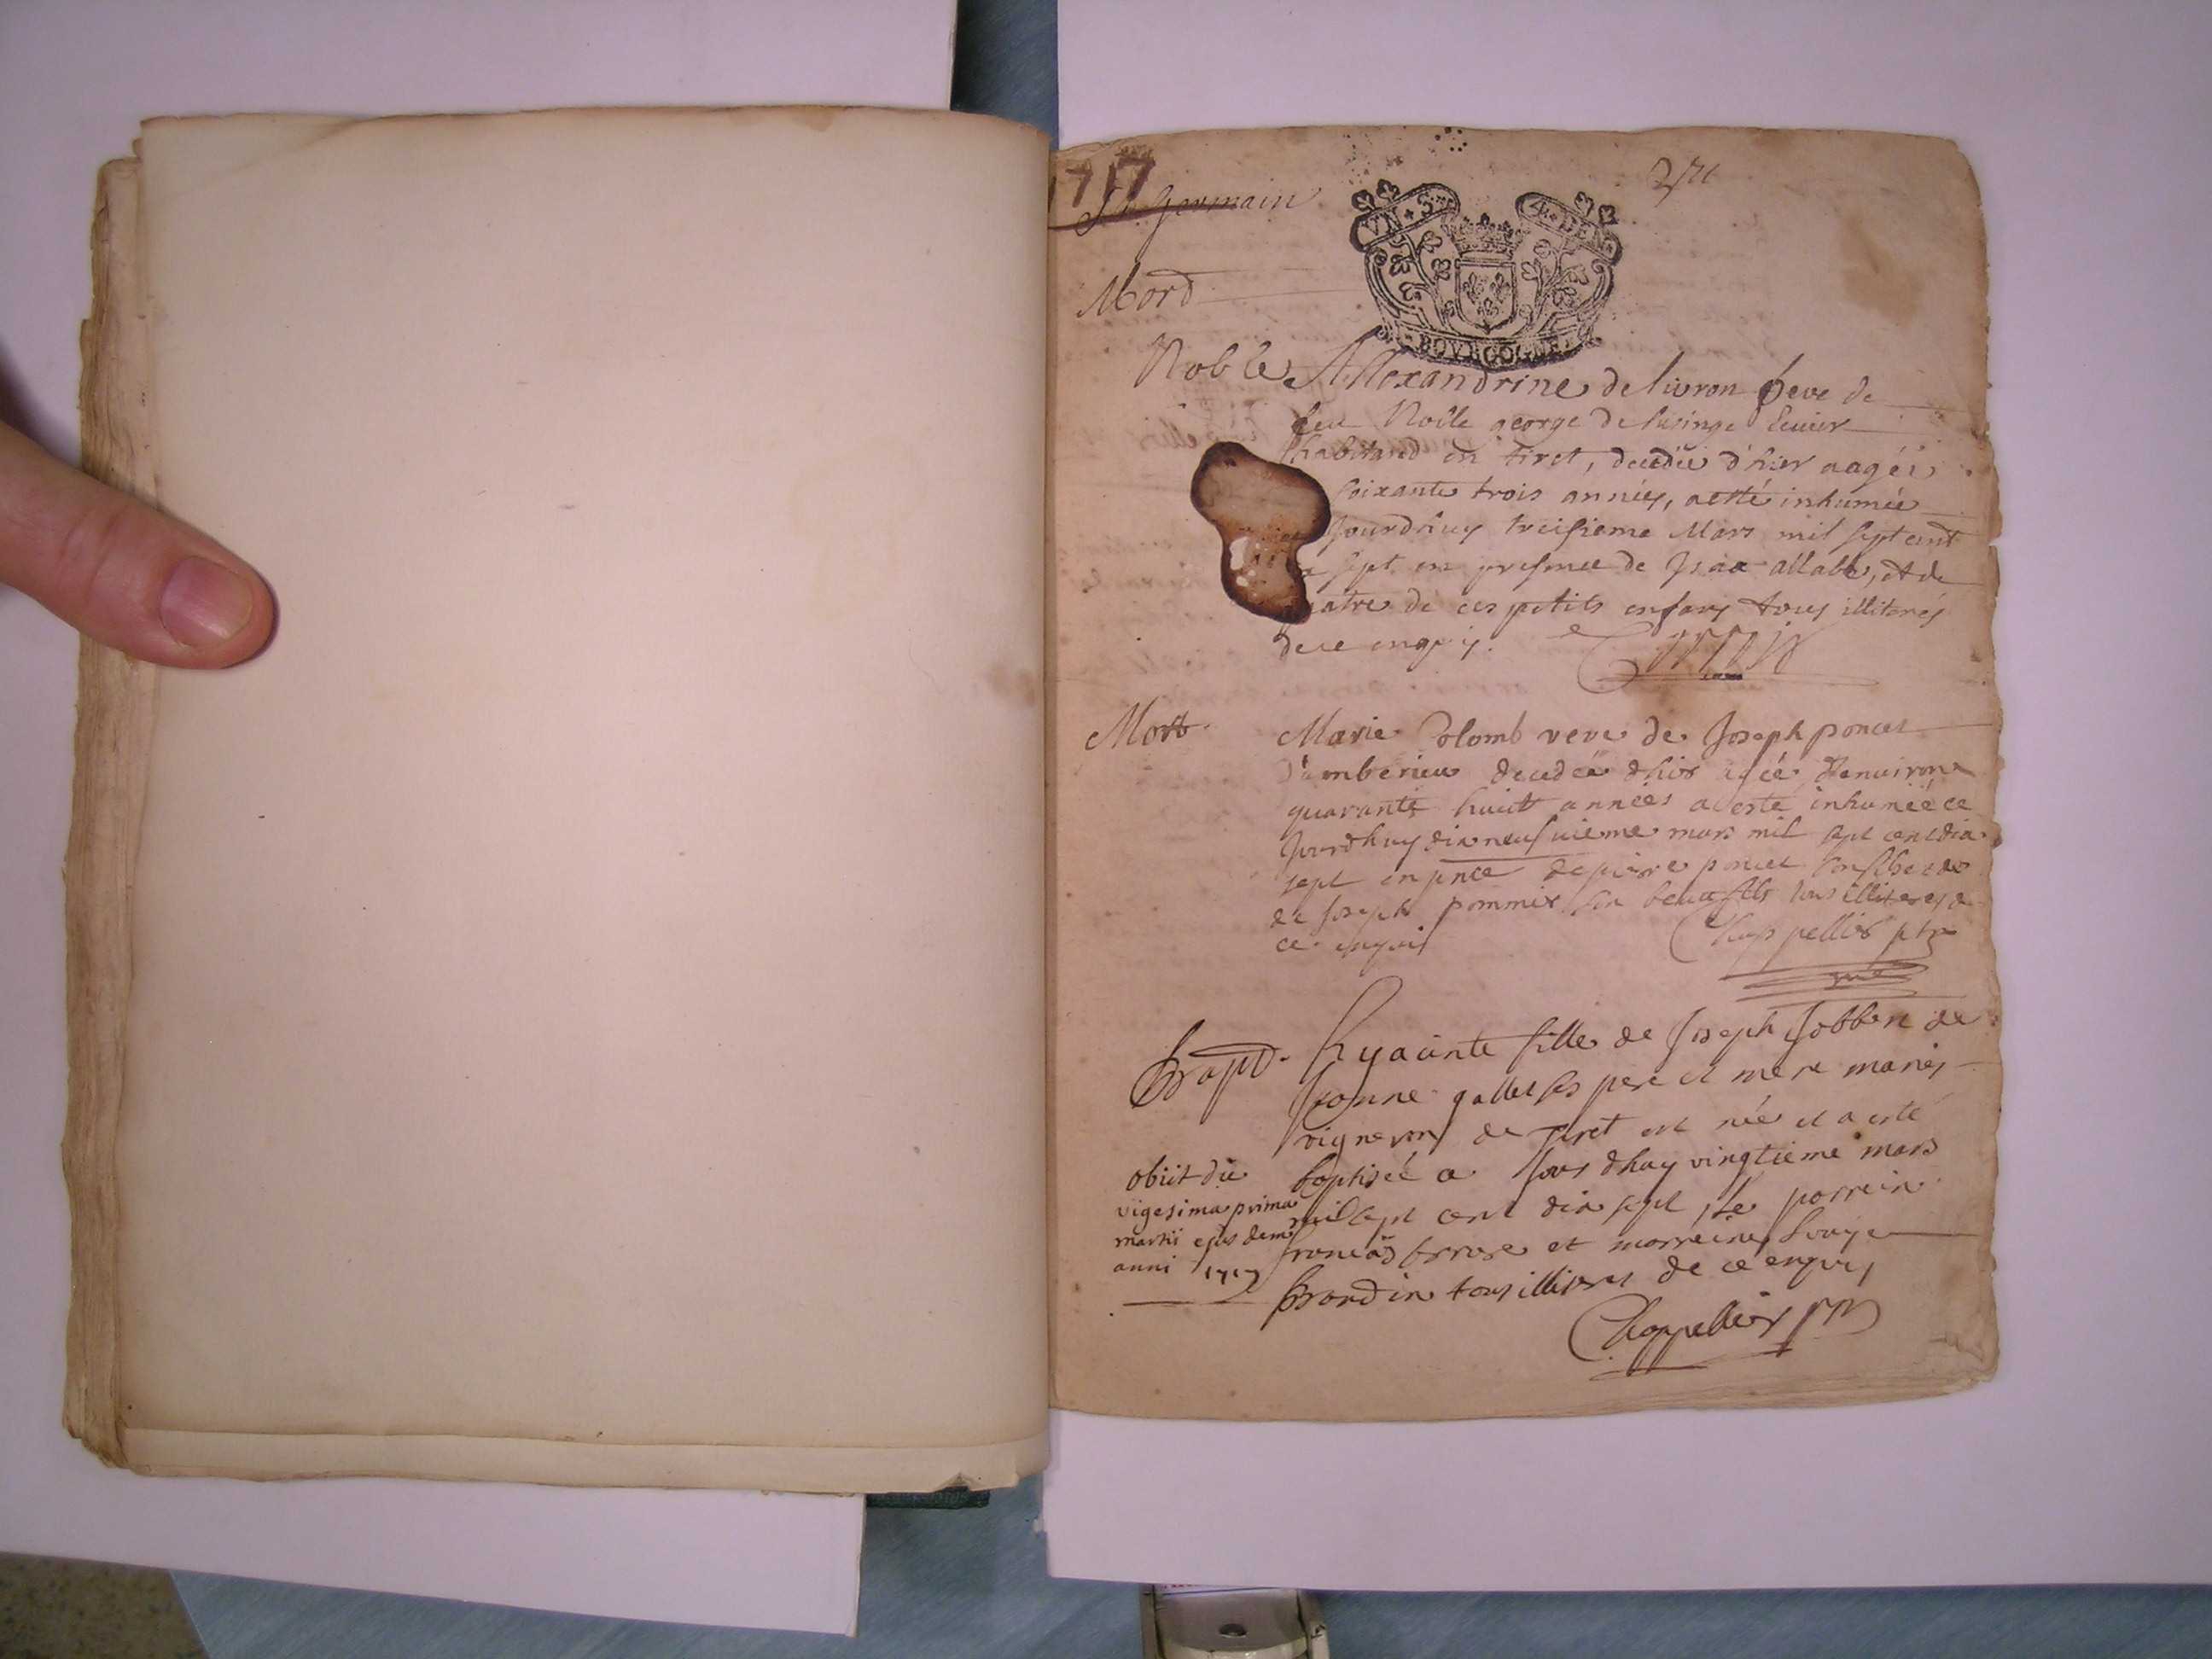 1717
St Germain
VN • S.
4 • DEN
BOVRGOGNE
Mord
Noble Allexandrine de livron veve de
feu Noble george de lusinge Ecuier
habitand en tiret, decedée d'hier aagée
soixante trois années, a esté inhumée
jourdhuy treisieme Mars mil sept cent
sept en presence de Isaa allabe, et de
quatre de ces petits enfans tous illiterés
de ce enquis.
Mort
Marie Colomb veve de Joseph poncet
d'amberieu decedée d'hier agée d'environ
quarante huict années a esté inhumée ce
jourdhuy dix neufvieme mars mil sept cent dix
sept en pnce de pierre poncet son filz et de
de Joseph pommier son beau filz tous illiteres de
ce enquis
Chappellier ptre
Bapt. hyacinte fille de Joseph Jobbert de
Jeanne gallet ses pere et mere mariés
vignerons de tiret est née et a esté
baptisée a Jourdhuy vingtieme mars
mil sept cent dix sept, le parrein
francois et marreine
tous illiteres de ce enquis
Chappellier
obiit die
vigesima prima
martii ejusdem
anni 1717